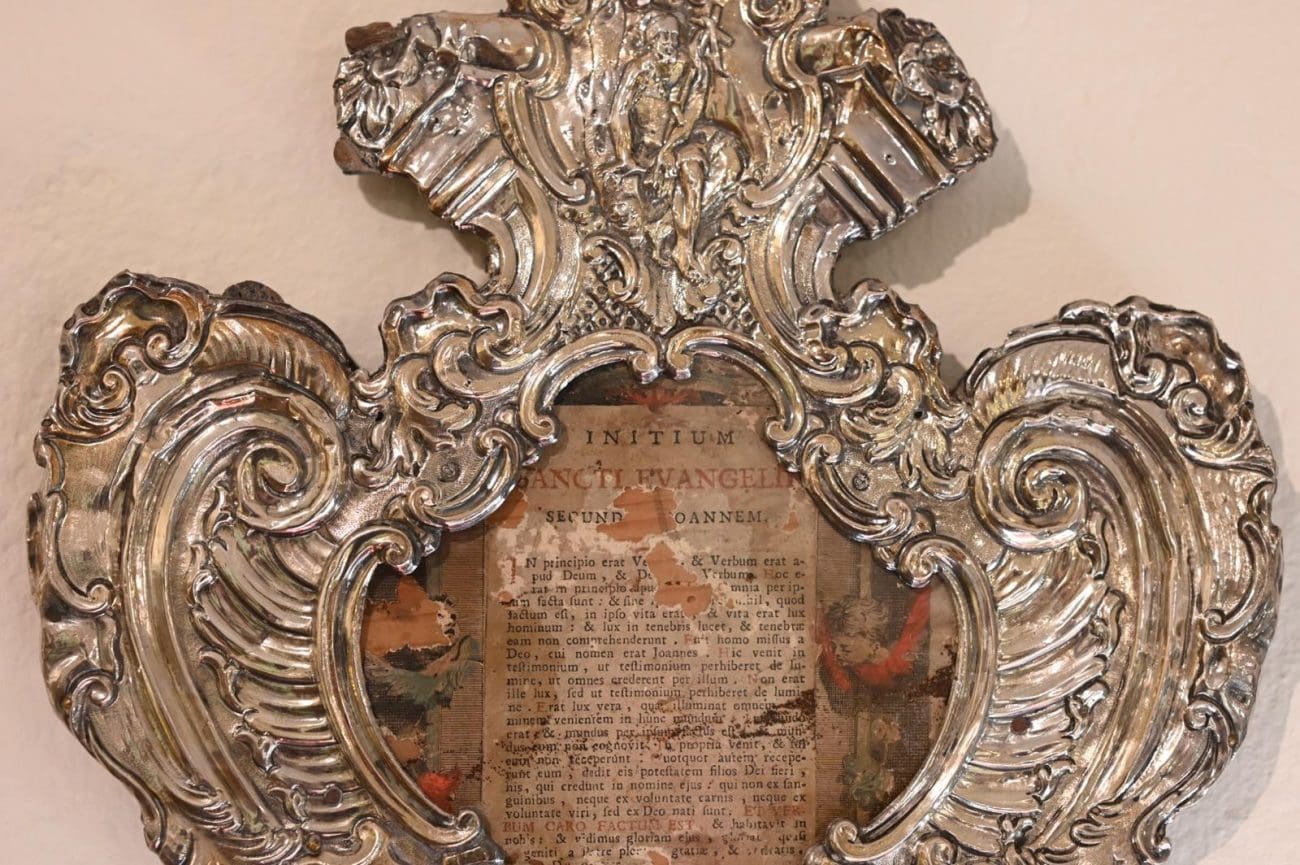 INITIUM
SANCTI EVANGELII
SECUND OANNEM.
IN principio erat Ve & Verbum erat a-
pud Deum, & De Verbum. Hoc e-
rat in principio apu mnia per ip-
sum facta sunt: & sine ip hil, quod
factum est, in ipso vita erat, & vita erat lux
hominum: & lux in tenebris lucet, & tenebræ
eam non comprehenderunt. Fuit homo missus a
Deo, cui nomen erat Joannes. Hic venit in
testimonium, ut testimonium perhiberet de lu-
mine, ut omnes crederent per illum. Non erat
ille lux, sed ut testimonium perhiberet de lumi-
ne. Erat lux vera, quæ illuminat omnem
minem venientem in hunc mundum. mundo
erat, & mundus per ipsum factus est, mun-
dus eum non cognovit. In propria venit, & sui
eum non receperunt. Quotquot autem recepe-
runt eum, dedit eis potestatem filios Dei fieri,
his, qui credunt in nomine ejus: qui non ex san-
guinibus, neque ex voluntate carnis, neque ex
voluntate viri, sed ex Deo nati sunt. ET VER-
BUM CARO FACTUM EST, & habitavit in
nobis: & vidimus gloriam ejus, gloriam quasi
geniti a Patre plen gratiæ, & veritatis.